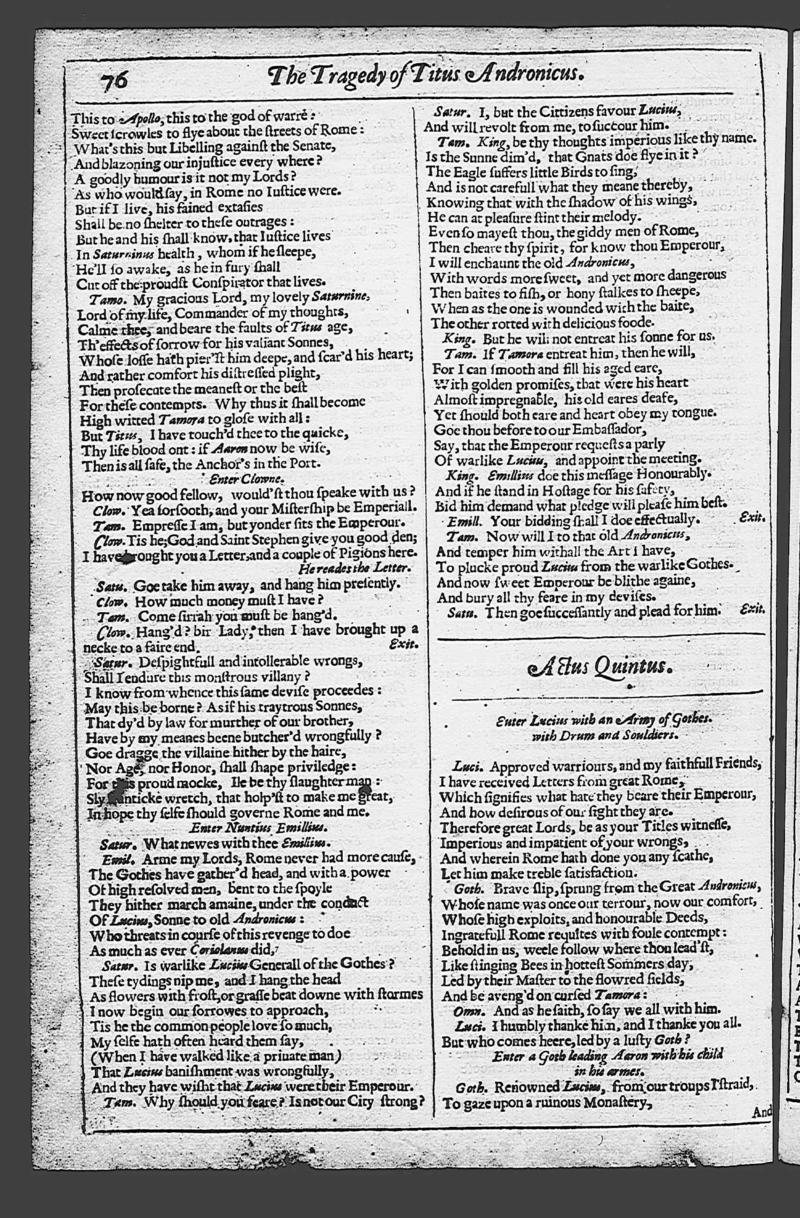 76
The Tragedy of Titus Andronicus.
This to Apollo, this to the god of warre:
Sweet scrowles to flye about the streets of Rome:
What's this but Libelling against the Senate,
And blazoning our injustice every where?
A goodly humour is it not my Lords?
As who would say, in Rome no Iustice were.
But if I live, his fained extasies
Shall be no shelter to these outrages:
But he and his shall know, that Iustice lives
In Saturninus health, whom if he sleepe,
He'll so awake, as he in fury shall
Cut off the proudst Conspirator that lives.
Tamo. My gracious Lord, my lovely Saturnine,
Lord of my life, Commander of my thoughts,
Calme thee, and beare the faults of Titus age,
Th'effects of sorrow for his valiant Sonnes,
Whose losse hath pier'st him deepe, and scar'd his heart;
And rather comfort his distressed plight,
Then prosecute the meanest or the best
For these contempts. Why thus it shall become
High witted Tamora to glose with all:
But Titus, I have touch'd thee to the quicke,
Thy life blood ont: if Aaron now be wise,
Then is all safe, the Anchor's in the Port.
Enter Clowne.
How now good fellow, would'st thou speake with us?
Clow. Yea forsooth, and your Mistership be Emperiall.
Tam. Empresse I am, but yonder sits the Emperour.
Clow. Tis he; God and Saint Stephen give you good den;
I have brought you a Letter, and a couple of Pigions here.
He reades the Letter.
Satu. Goe take him away, and hang him presently.
Clow. How much money must I have?
Tam. Come sirrah you must be hang'd.
Clow. Hang'd? bir Lady, then I have brought up a
necke to a faire end. Exit.
Satur. Despightfull and intollerable wrongs,
Shall I endure this monstrous villany?
I know from whence this same devise proceedes:
May this be borne? As if his traytrous Sonnes,
That dy'd by law for murther of our brother,
Have by my meanes beene butcher'd wrongfully?
Goe dragge the villaine hither by the haire,
Nor Age, nor Honor, shall shape priviledge:
For this proud mocke, Ile be thy slaughter man:
Sly franticke wretch, that holp'st to make me great,
In hope thy selfe should governe Rome and me.
Enter Nuntius Emillius.
Satur. What newes with thee Emilius.
Emil. Arme my Lords, Rome never had more cause,
The Gothes have gather'd head, and with a power
Of high resolved men, bent to the spoyle
They hither march amaine, under the conduct
Of Lucius, Sonne to old Andronicus:
Who threats in course of this revenge to doe
As much as ever Coriolanus did,
Satur. Is warlike Lucius Generall of the Gothes?
These tydings nip me, and I hang the head
As flowers with frost, or grasse beat downe with stormes
I now begin our sorrowes to approach,
Tis he the common people love so much,
My selfe hath often heard them say,
(When I have walked like a private man)
That Lucius banishment was wrongfully,
And they have wisht that Lucius were their Emperour.
Tam. Why should you feare? Is not our City strong?
Satur. I, but the Cittizens favour Lucius,
And will revolt from me, to succour him.
Tam. King, be thy thoughts imperious like thy name.
Is the Sunne dim'd, that Gnats doe flye in it?
The Eagle suffers little Birds to sing,
And is not carefull what they meane thereby,
Knowing that with the shadow of his wings,
He can at pleasure stint their melody.
Even so mayest thou, the giddy men of Rome,
Then cheare thy spirit, for know thou Emperour,
I will enchaunt the old Andronicus,
With words more sweet, and yet more dangerous
Then baites to fish, or hony stalkes to sheepe,
When as the one is wounded with the baite,
The other rotted with delicious foode.
King. But he will not entreat his sonne for us.
Tam. If Tamora entreat him, then he will,
For I can smooth and fill his aged eare,
With golden promises, that were his heart
Almost impregnable, his old eares deafe,
Yet should both eare and heart obey my tongue.
Goe thou before to our Embassador,
Say, that the Emperour requests a parly
Of warlike Lucius, and appoint the meeting.
King. Emillius doe this message Honourably.
And if he stand in Hostage for his safety,
Bid him demand what pledge will please him best.
Emill. Your bidding shall I doe effectually. Exit.
Tam. Now will I to that old Andronicus,
And temper him withall the Art I have,
To plucke proud Lucius from the warlike Gothes.
And now sweet Emperour be blithe againe,
And bury all thy feare in my devises.
Satu. Then goe successantly and plead for him. Exit.
Actus Quintus.
Enter Lucius with an Army of Gothes.
with Drum and Souldiers.
Luci. Approved warriours, and my faithfull Friends,
I have received Letters from great Rome,
Which signifies what hate they beare their Emperour,
And how desirous of our sight they are.
Therefore great Lords, be as your Titles witnesse,
Imperious and impatient of your wrongs,
And wherein Rome hath done you any scathe,
Let him make treble satisfaction.
Goth. Brave slip, sprung from the Great Andronicus,
Whose name was once our terrour, now our comfort,
Whose high exploits, and honourable Deeds,
Ingratefull Rome requites with foule contempt:
Behold in us, weele follow where thou lead'st,
Like stinging Bees in hottest Sommers day,
Led by their Master to the flowred fields,
And be aveng'd on cursed Tamora:
Omn. And as he saith, so say we all with him.
Luci. I humbly thanke him, and I thanke you all.
But who comes heere, led by a lusty Goth?
Enter a Goth leading Aaron with his child
in his armes.
Goth. Renowned Lucius, from our troups I straid,
To gaze upon a ruinous Monastery,
And